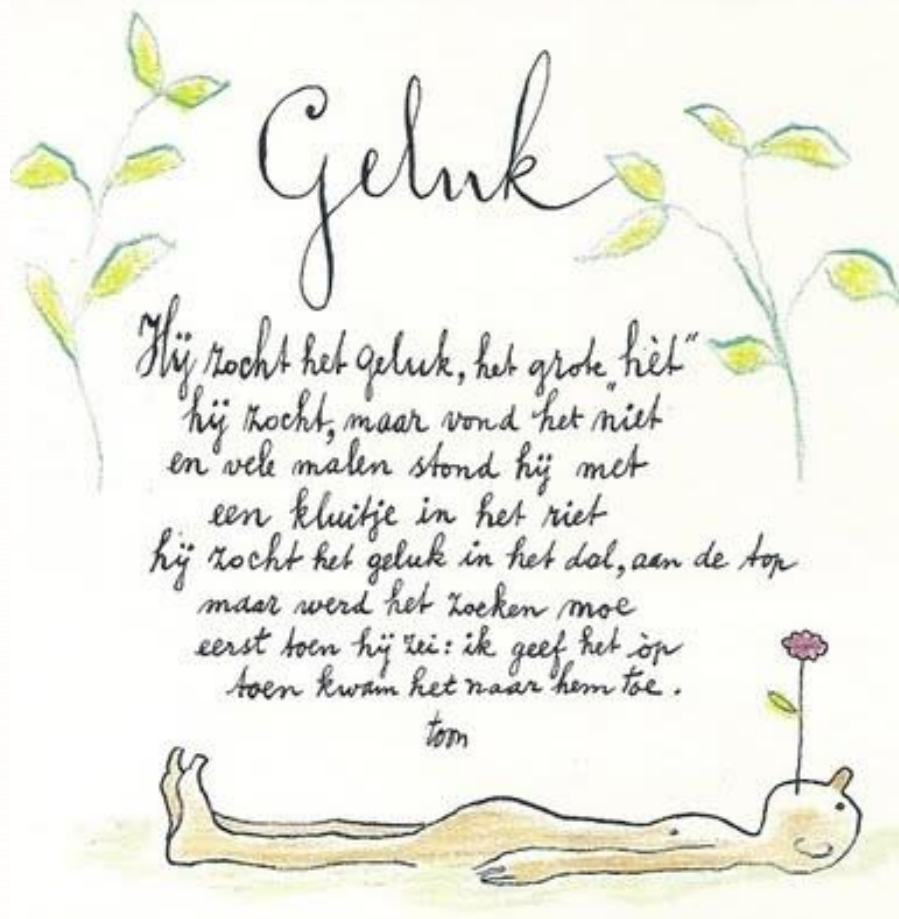 Geluk
Hij zocht het geluk, het grote „hèt”
hij zocht, maar vond het niet
en vele malen stond hij met
een kluitje in het riet
hij zocht het geluk in het dal, aan de top
maar werd het zoeken moe
eerst toen hij zei: ik geef het òp
toen kwam het naar hem toe.
toon